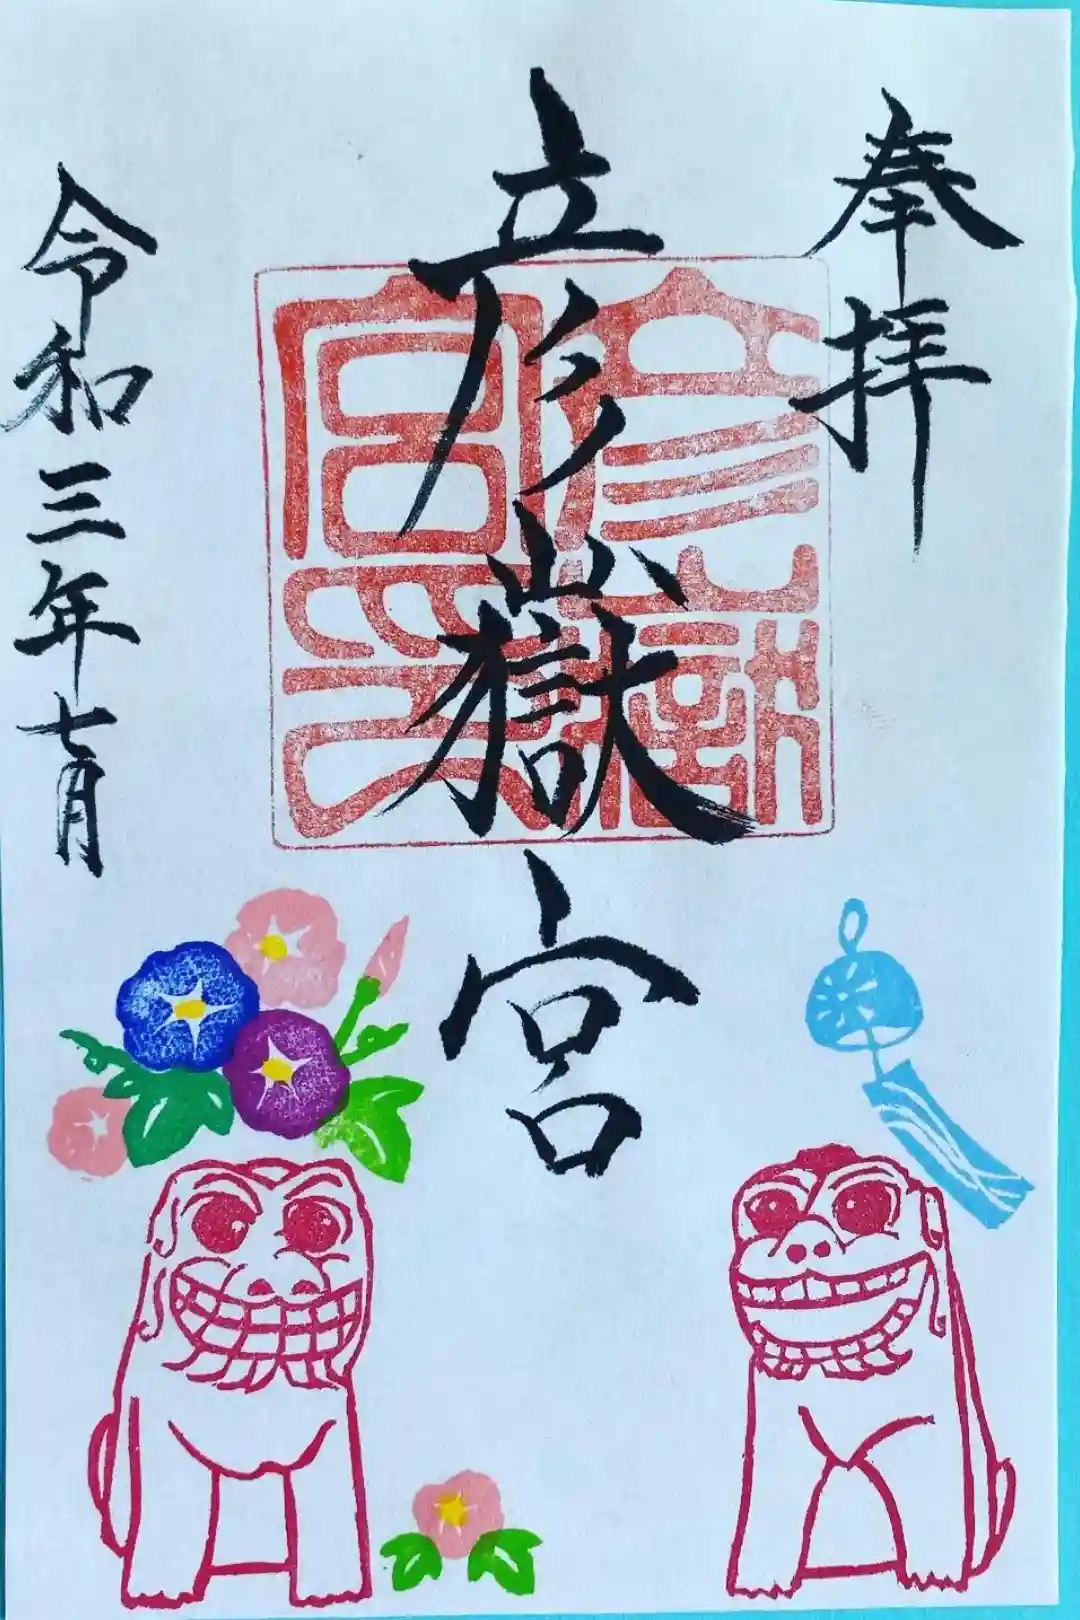 奉拝
彦嶽宮
彦嶽
宮印
令和三年七月